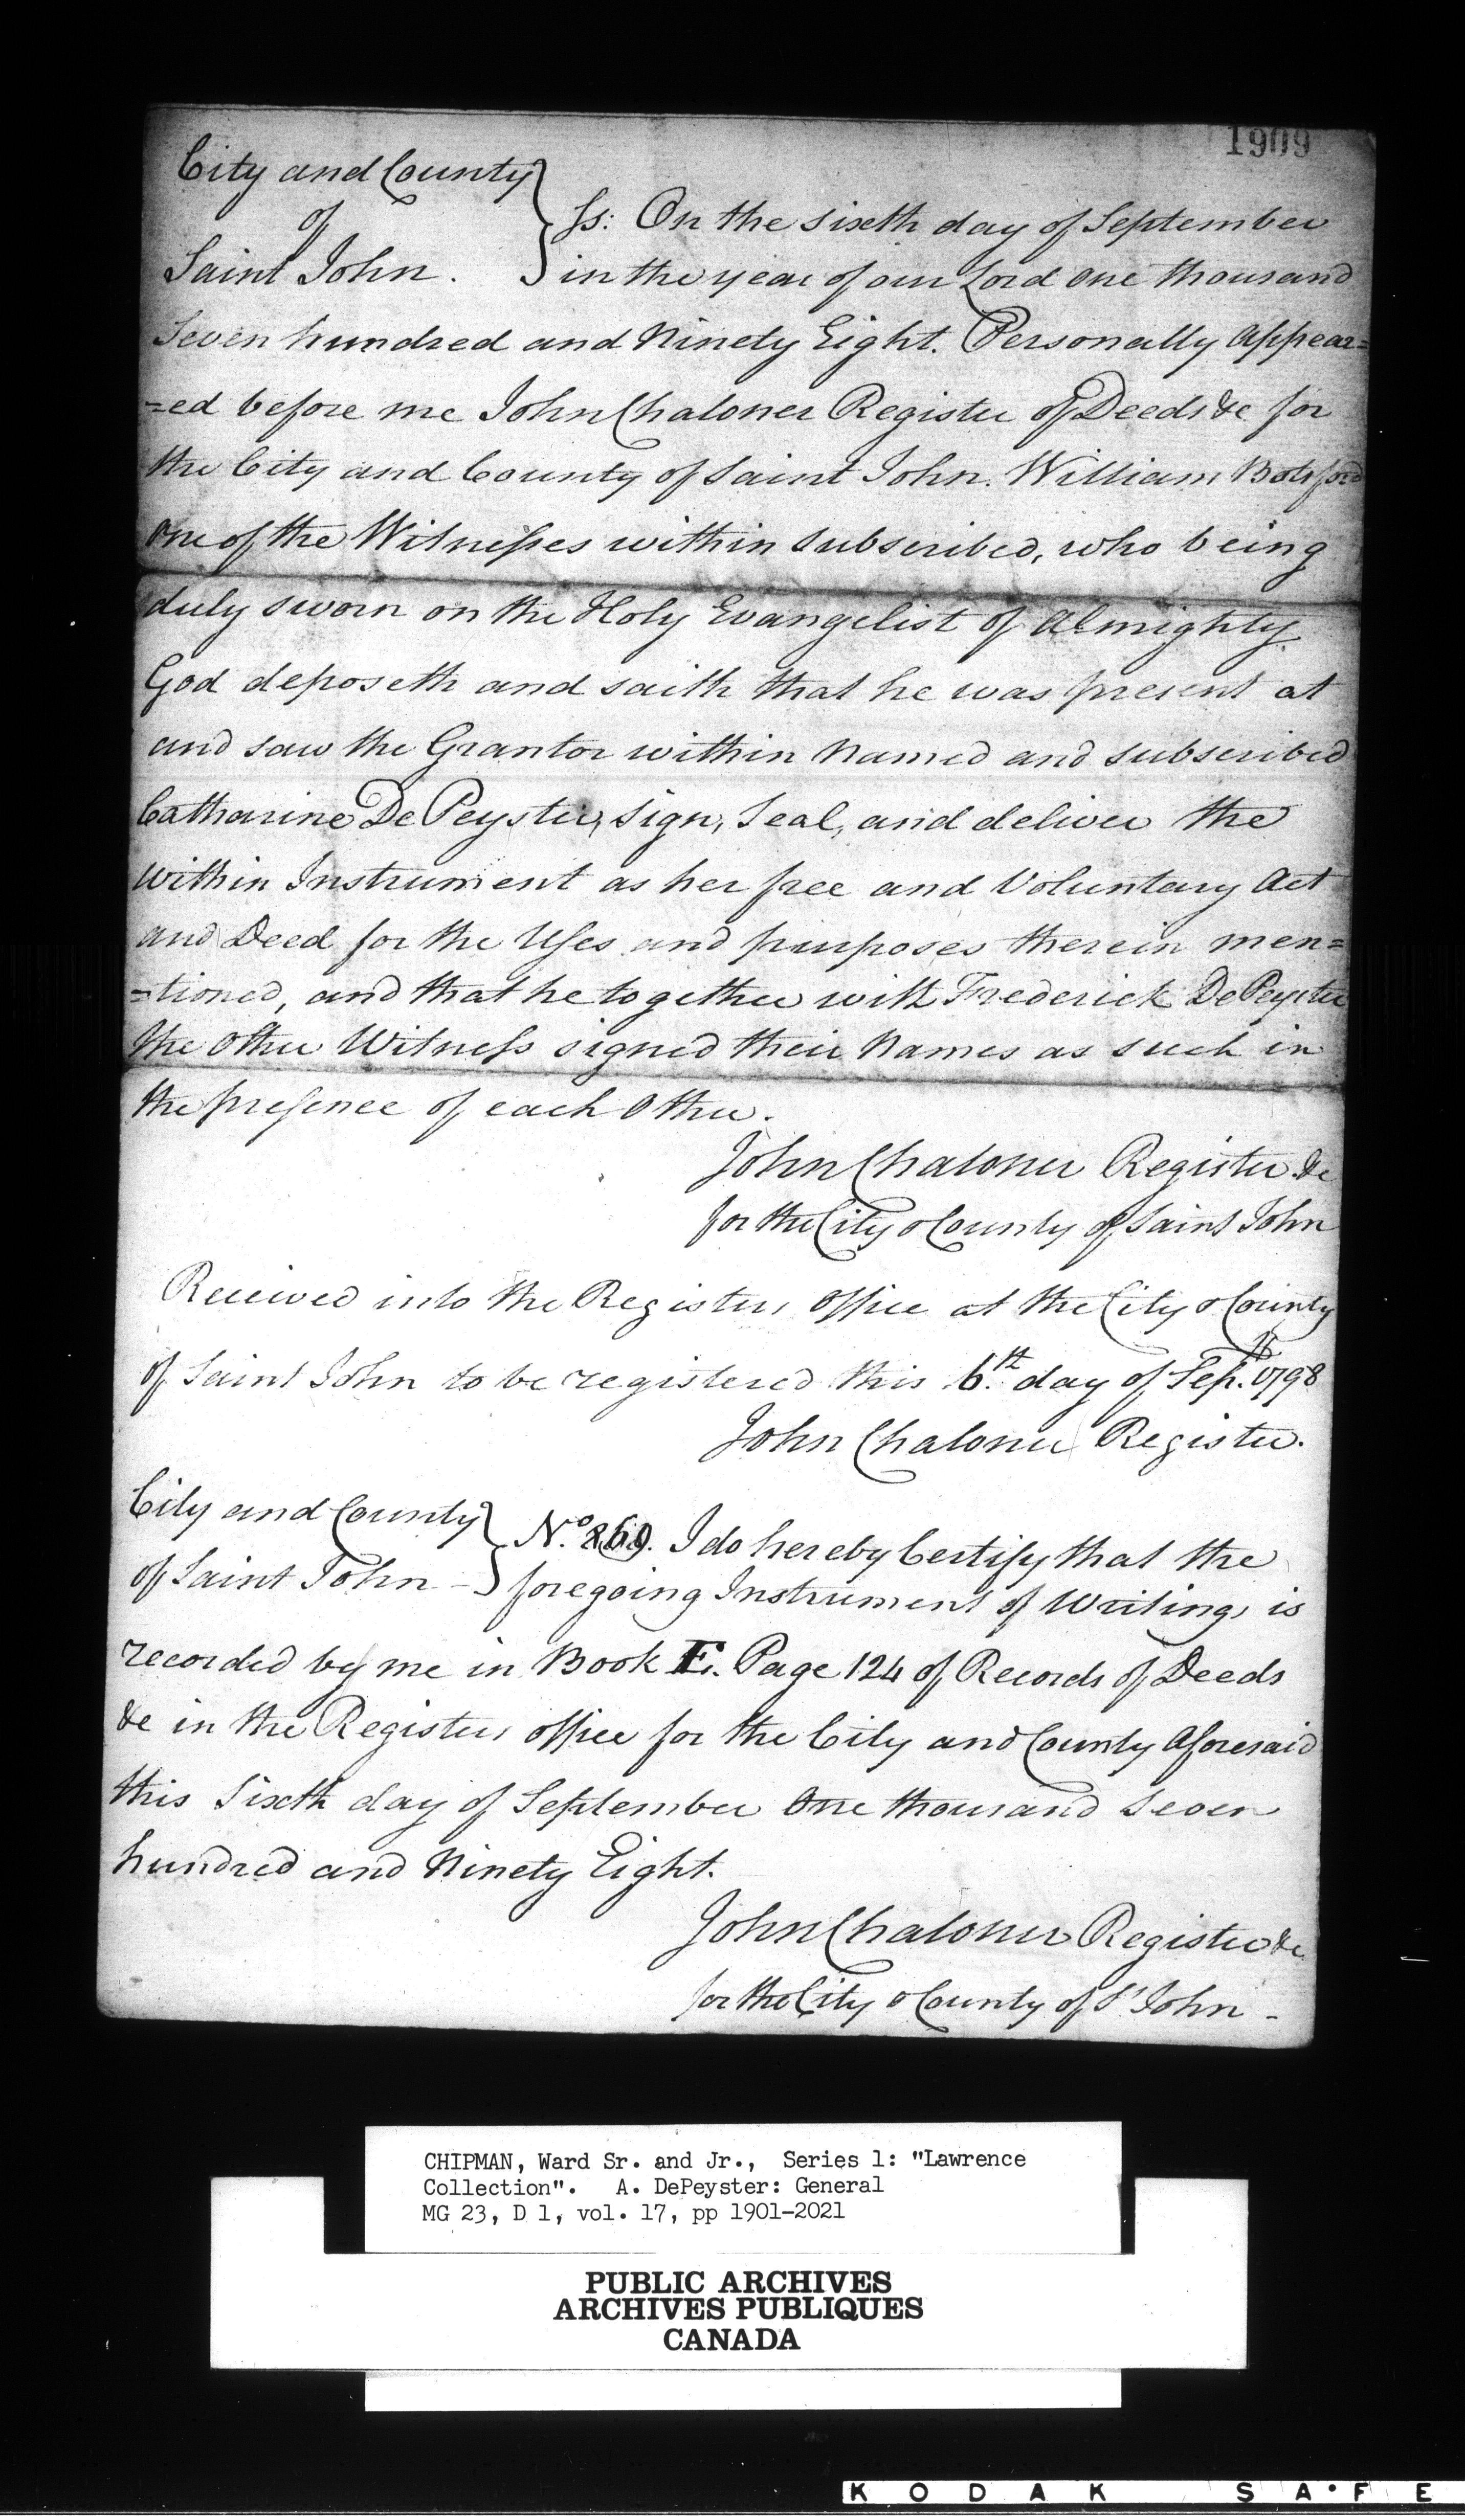 1909
City and County
of
Saint John.
ss: On the sixth day of September
in the year of our Lord one thousand
Seven hundred and Ninety Eight. Personally Appear=
=ed before me John Chaloner Register of Deeds &c for
the City and County of Saint John. William Botsford
One of the Witnesses within subscribed, who being
duly sworn on the Holy Evangelist of Almighty
God deposeth and saith that he was present at
and saw the Grantor within Named and subscribed
Catharine De Peyster, sign, Seal, and deliver the
Within Instrument as her free and Voluntary Act
and Deed for the Uses and purposes therein men=
=tioned, and that he together with Frederick DePeyster
the Other Witness signed their Names as such in
the presence of each Other.
John Chaloner Register &c
for the City & County of Saint John
Received into the Registers Office at the City & County
of Saint John to be registered this 6th. day of Sep. 1798
John Chaloner Register.
City and County
of Saint John
No. 860. I do hereby Certify that the
foregoing Instrument of Writing, is
recorded by me in Book E. Page 124 of Records of Deeds
&c in the Registers office for the City and County Aforesaid
this Sixth day of September One thousand Seven
hundred and Ninety Eight.
John Chaloner Register &c
for the City & County of St John -
CHIPMAN, Ward Sr. and Jr., Series 1: "Lawrence
Collection". A. DePeyster: General
MG 23, D 1, vol. 17, pp 1901-2021
PUBLIC ARCHIVES
ARCHIVES PUBLIQUES
CANADA
KODAK SA•FE